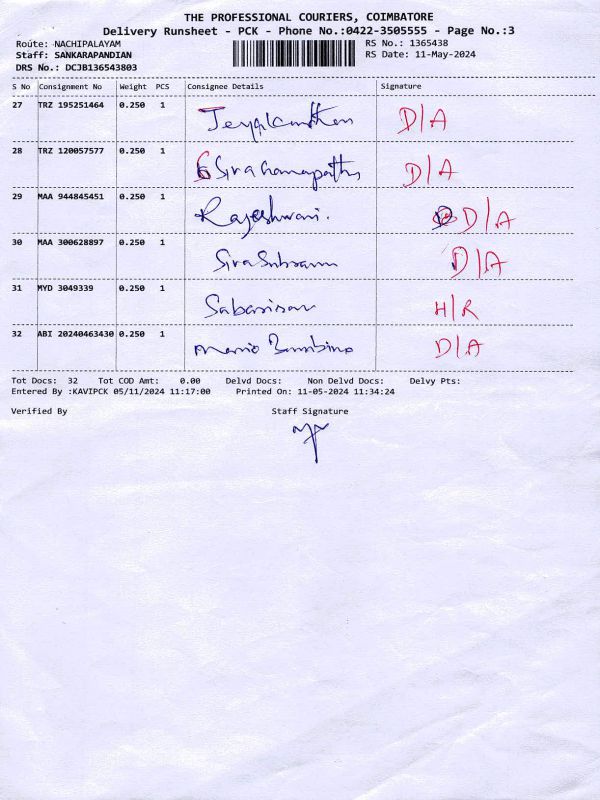 THE PROFESSIONAL COURIERS, COIMBATORE
Delivery Runsheet - PCK - Phone No.:0422-3505555 - Page No.:3
Route: NACHIPALAYAM RS No.: 1365438
Staff: SANKARAPANDIAN RS Date: 11-May-2024
DRS No.: DCJB136543803
S No Consignment No Weight PCS Consignee Details Signature
27 TRZ 195251464 0.250 1 D/A
28 TRZ 120057577 0.250 1 D/A
29 MAA 944845451 0.250 1 Rajeshwari. D/A
30 MAA 300628897 0.250 1 D/A
31 MYD 3049339 0.250 1 H/R
32 ABI 20240463430 0.250 1 D/A
Tot Docs: 32 Tot COD Amt: 0.00 Delvd Docs: Non Delvd Docs: Delvy Pts:
Entered By :KAVIPCK 05/11/2024 11:17:00 Printed On: 11-05-2024 11:34:24
Verified By Staff Signature